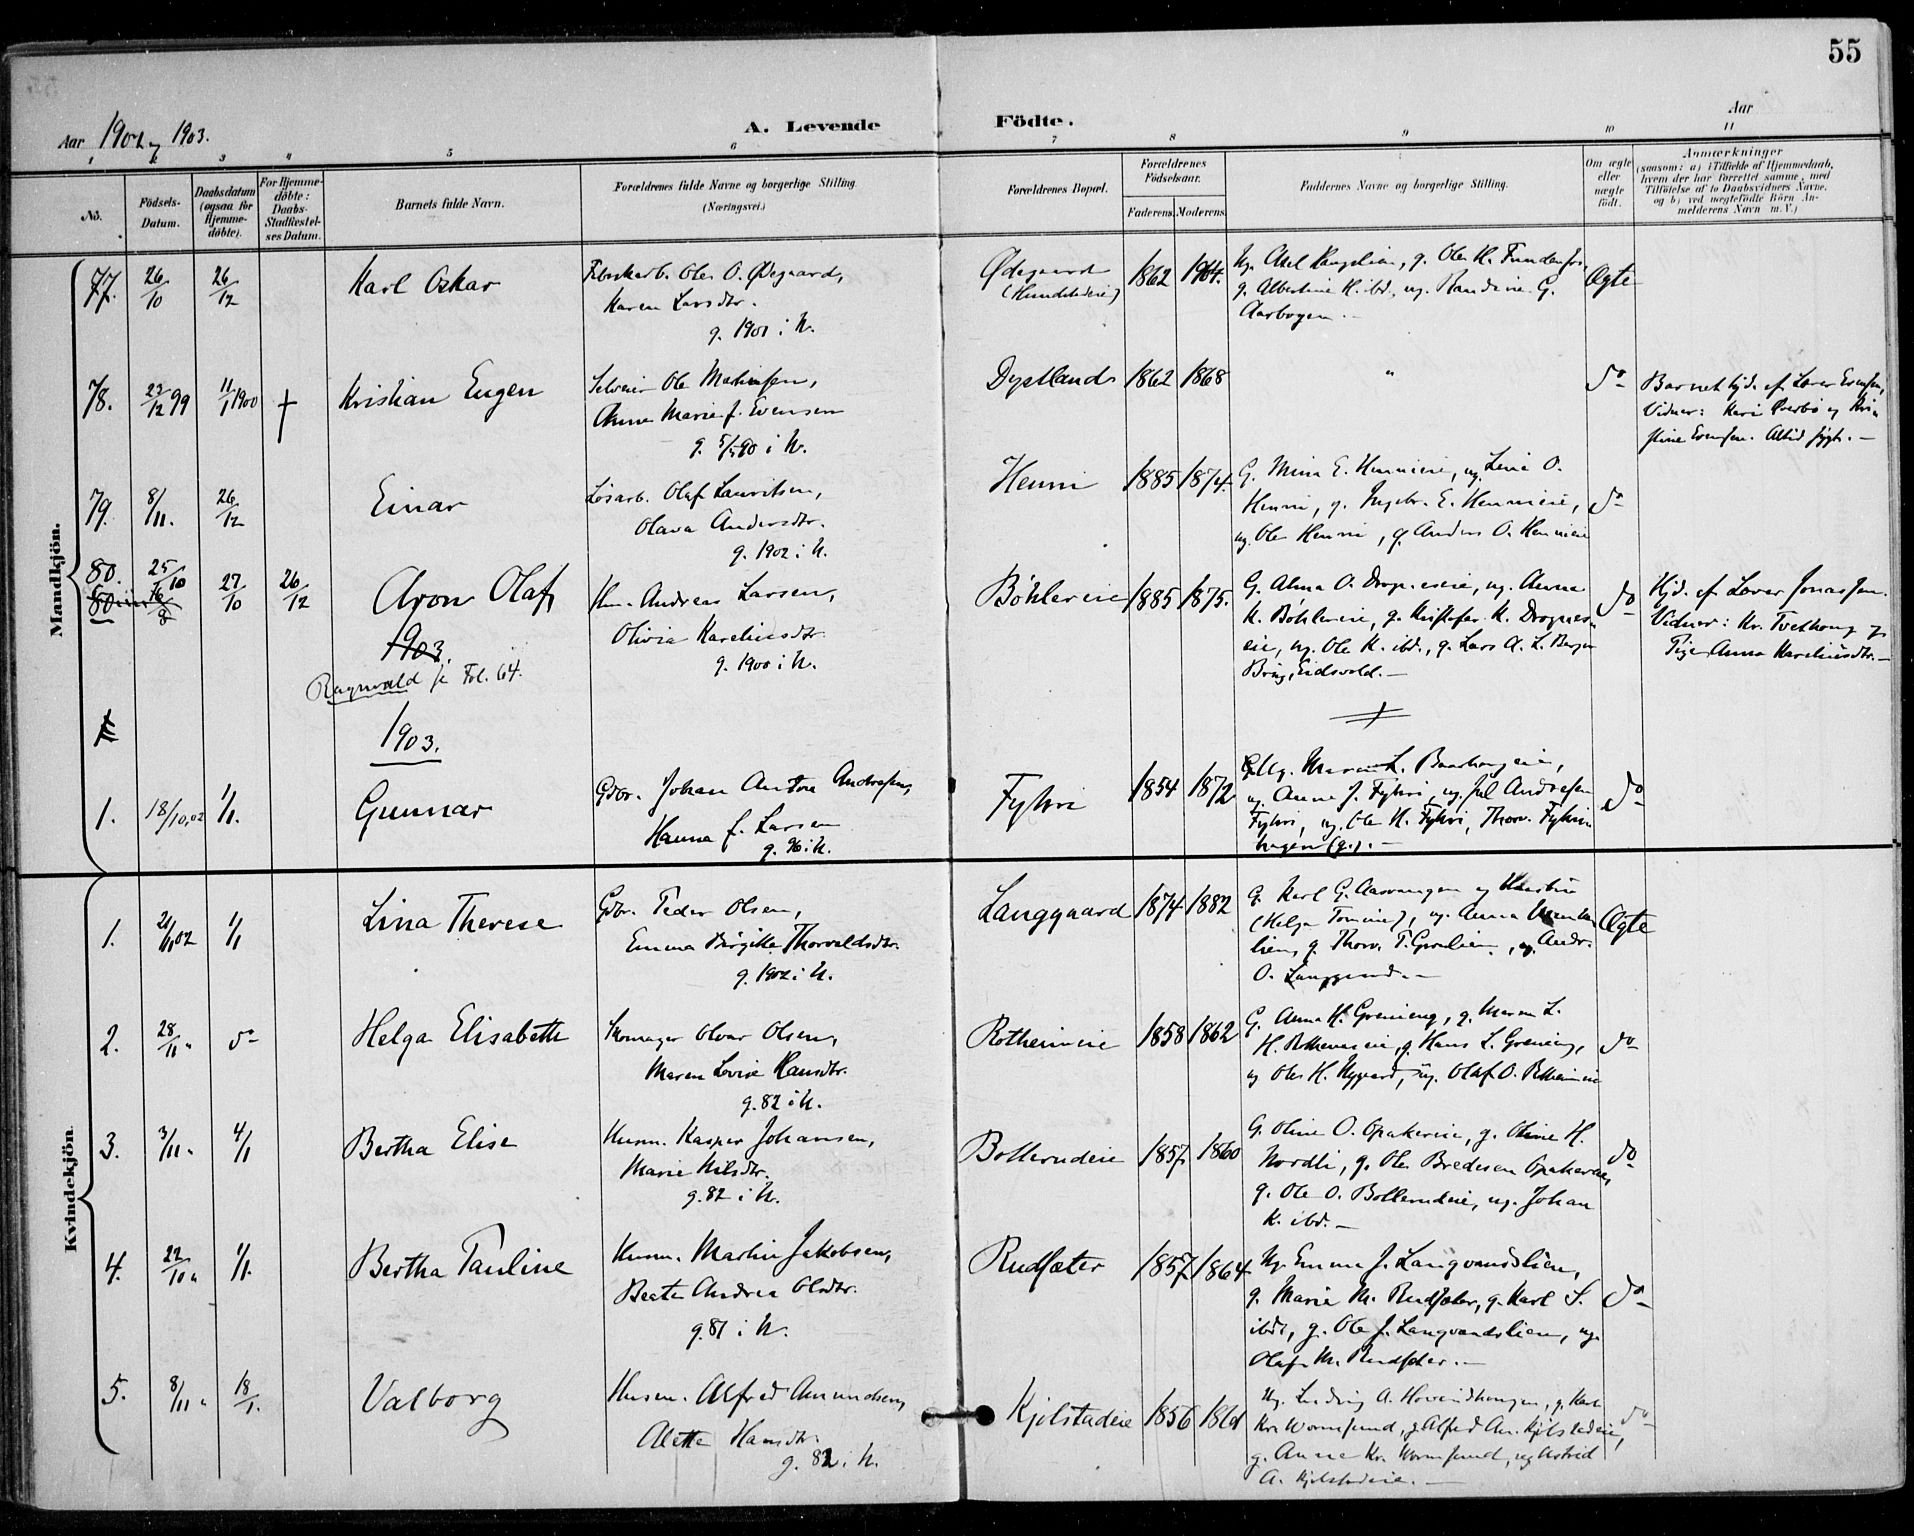 55
Aar 1902 og 1903.
A. Levende Födte.
Aar
1 2 3 4 5 6 7 8 9 10 11
No.
Födsels-Datum.
Daabsdatum (ogsaa for Hjemme-döbte).
For Hjemme-döbte: Daabs-Stadfæstel-ses Datum.
Barnets fulde Navn.
Forældrenes fulde Navne og borgerlige Stilling (Næringsvei.)
Forældrenes Bopæl.
Forældrenes Födselsaar.
Faderens. Moderens.
Faddernes Navne og borgerlige Stilling.
Om ægte eller uægte födt.
Anmærkninger
(saasom: a) i Tilfælde af Hjemmedaab, hvem der har forrettet samme, med Tilföielse af to Daabsvidners Navne, og b) ved uægtefödte Börn Anmelderens Navn m. V.)
Mandkjön.
77. 26/10 26/12 Karl Oskar
Ole O. Ødegaard,
Karen Larsdtr.
g. 1901 i N.
Ødegaard
1862
Ug. Axel g. Ole K.
g. Albertine K. ibd., ug. Randine G.
Aarbogen.
Ægte
78. 23/12 99 11/1 1900 † Kristian Eugen
Selveier Ole Martinsen,
Anne Marie f. Evensen
g. 5/5 90 i N.
Dystland
1862 1868
"
do
Barnet hjd. af Lærer Evensen,
Vidner: Kari Øverbø og
Evensen. Altid sygt. —
79. 8/11. 26/12 Einar
Løsarb. Olaf Lauritsen,
Olava Andersdtr.
g. 1902 i N.
Henni
1885 1874.
G. Mina E. Hennieie, ug. Lina O.
Henni, g. Ingebr. E. Hennieie,
ug. Ole Henni, g. Anders O. Hennieie
do
80. 25/10 27/10 26/12 Aron Olaf
Hm. Andreas Larsen,
Olivia Kareliusdtr.
g. 1900 i N.
Böhlereie
1885 1875.
G. Alma O. ug. Anna
K. Böhlereie, g. Kristofer K.
eie, ug. Ole K. ibd., g. Lars A. L.
Eidsvold. —
do
Hjd. af Lærer Jonassen.
Vidner: Kr. Tvethaug og
Pige Anna Kareliusdtr. —
1903.
Ragnvald se Fol. 64.
1903.
1. 18/10,02 1/1. Gunnar
Gbr. Johan Anton Andresen,
Hanna f. Larsen
g. 96 i N.
Fyhri
1854 1872
Ug. Maren L.
ug. Anne J. Fyhri, ug. Jul Andresen
Fyhri, ug. Ole H. Fyhri, Thorv. Fyhri
hagen (g.). —
do
Kvindekjön.
1. 21/11 02 1/1 Lina Therese
Gbr. Peder Olsen,
Emma Birgitte Thorvaldsdtr.
g. 1902 i N.
Langgaard
1874 1882
G. Karl G. Aasvangen og Hustru
(Helga ), ug. Anna
lien, g. Thorv. T. ug. Andr.
O. Langgaard. —
Ægte
2. 28/11 " do Helga Elisabeth
Skomager Olvar Olsen,
Maren Lovise Hansdtr.
g. 82 i N.
Rotheimeie
1858 1862
G. Anna H. Grenieng, g. Maren L.
H. g. Hans L. Grenieng,
ug Ole H. Nygaard, ug. Olaf O. Rotheimeie
do
3. 3/11 " 4/1 Bertha Elise
Husm. Kasper Johansen,
Marie Nilsdtr.
g. 82 i N.
Bollerudeie
1857 1860
G. Oline O. Opakereie, g. Oline H.
Nordli, g. Ole Bredesen Opakereie,
g. Ole O. Bollerudeie, ug. Johan
K. ibd. —
do
4. 22/11 " 1/1. Bertha Pauline
Husm. Martin Jakobsen,
Beate Andrea Olsdtr.
g. 81 i N.
Rudsæter
1857 1864
Ug. Emma J. Langvandslien,
g. Marie M. Rudsæter, g. Karl S.
ibd., g. Ole J. Langvandslien, ug.
Olaf M. Rudsæter. —
do
5. 8/11 " 18/1. Valborg
Husm. Alfred Amundsen,
Alette Hansdtr.
g. 82 i N.
Kjölstadeie
1856 1861
Ug. Ludvig A. g. Karl
Kr. Wormsund, g. Alfred Am. Kjölstadeie,
g. Anne Kr. Wormsund, ug Astrid
A. Kjölstadeie. —
do